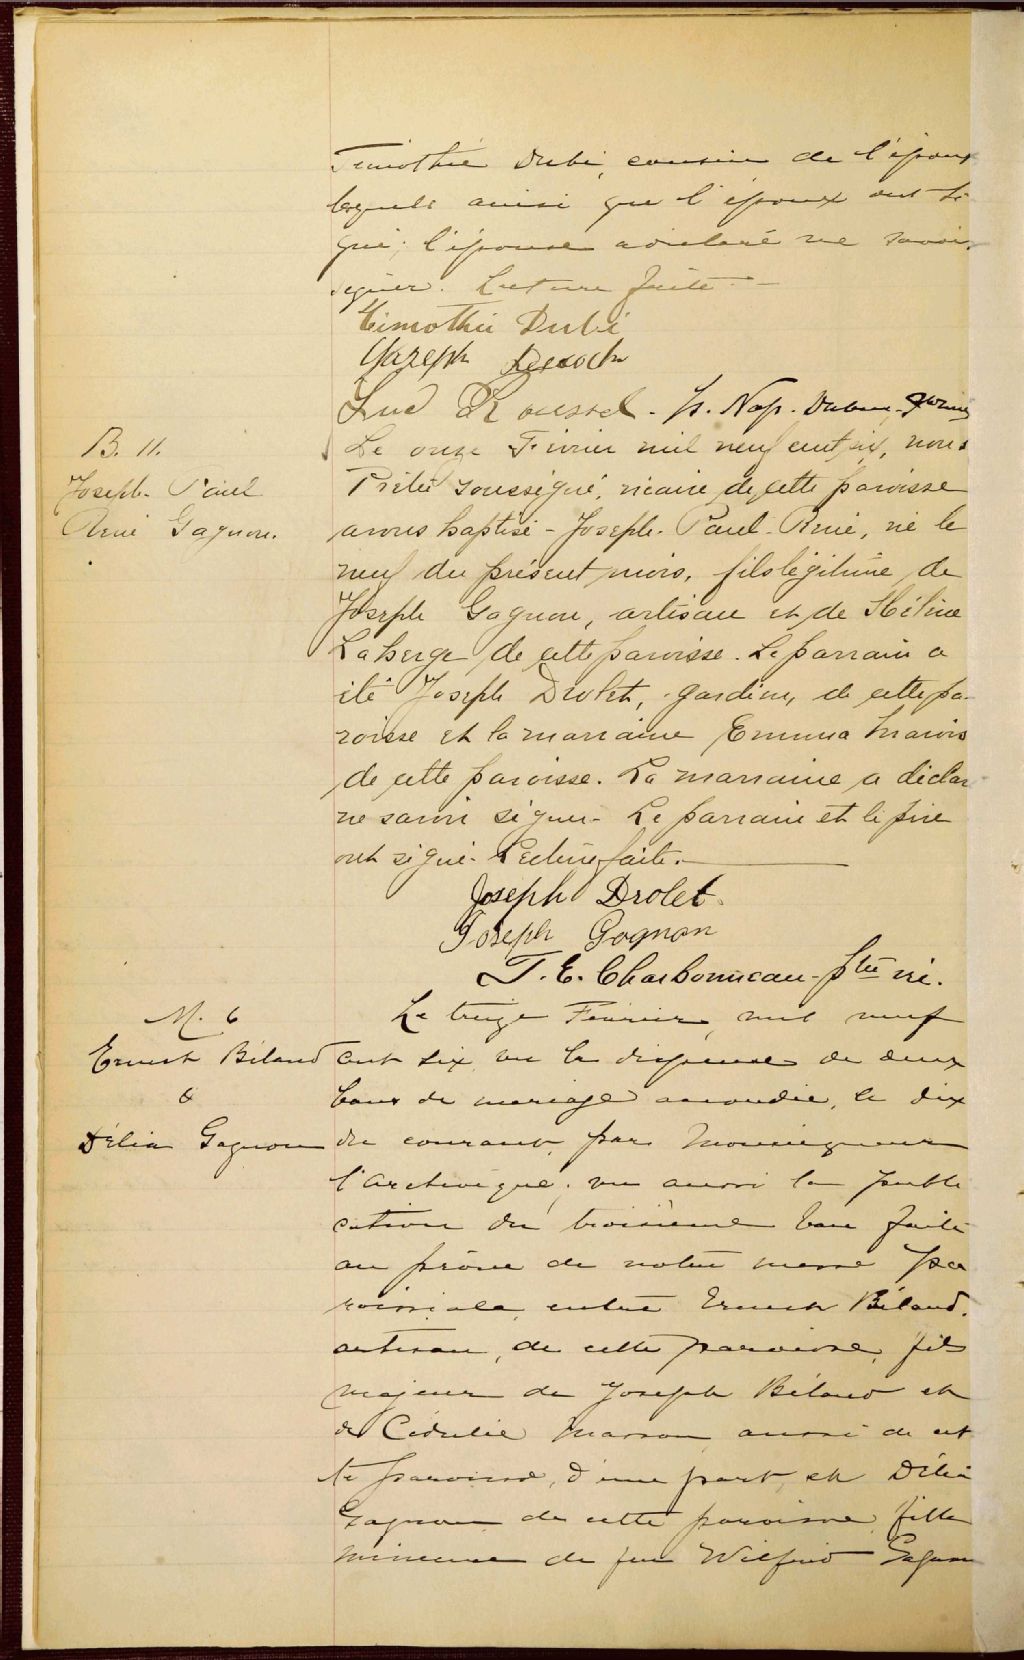 Timothée Dubé, cousin de l'épouse
lesquels ainsi que l'époux ont si
gné; l'épouse a déclaré ne savoir
signer. Lecture faite.
Timothée Dubé
Joseph
Luc Roussel - Js. Nap.
B. 11.
Joseph-Paul
René Gagnon.
Le onze Février mil neuf cent six, nous
Prêtre soussigné, vicaire de cette paroisse
avons baptisé - Joseph-Paul-René, né le
neuf du présent mois, fils légitime de
Joseph Gagnon, artisan et de Hélène
Laberge de cette paroisse. Le parrain a
été Joseph Drolet, gardien, de cette pa-
roisse et la marraine Emma Marois
de cette paroisse. La marraine a déclaré
ne savoir signer. Le parrain et le père
ont signé. Lecture faite.
Joseph Drolet.
Joseph Gagnon
T. E. Charbonneau ptre vic.
M. 6
Ernest Béland
&
Délia Gagnon
Le treize Février, mil neuf
cent six, vu la dispense de deux
bans de mariage accordée, le dix
du courant, par Monseigneur
l'Archevêque; vu aussi la publi
cation du troisième ban faite
au prône de notre messe pa
roissiale, entre Ernest Béland,
artisan, de cette paroisse, fils
majeur de Joseph Béland et
de Cédulie Masson aussi de cet
te paroisse, d'une part, et Délia
Gagnon de cette paroisse, fille
mineure de feu Wilfrid Gagnon